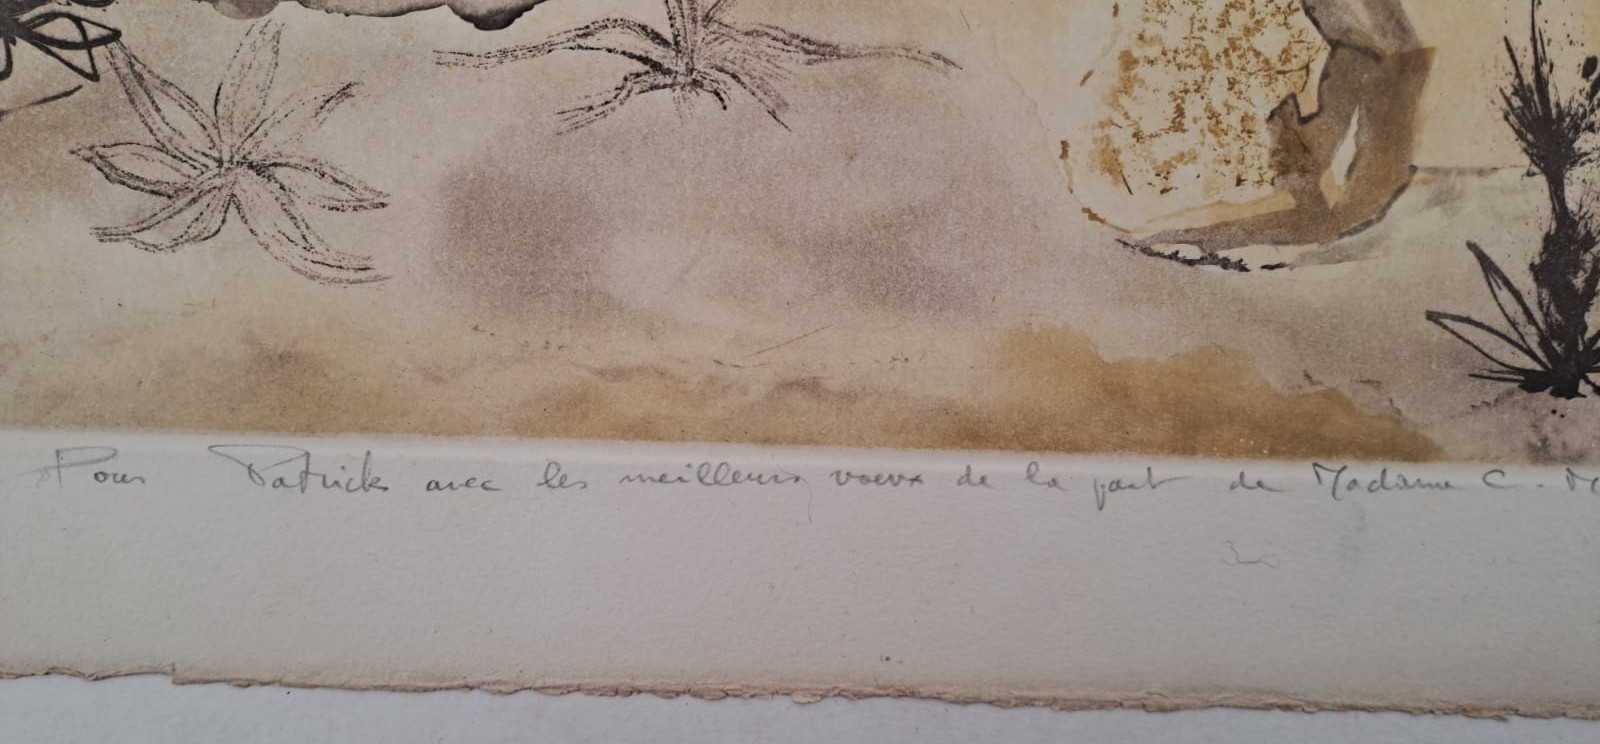 Pour Patrick avec les meilleurs voeux de la part de Madame C. M